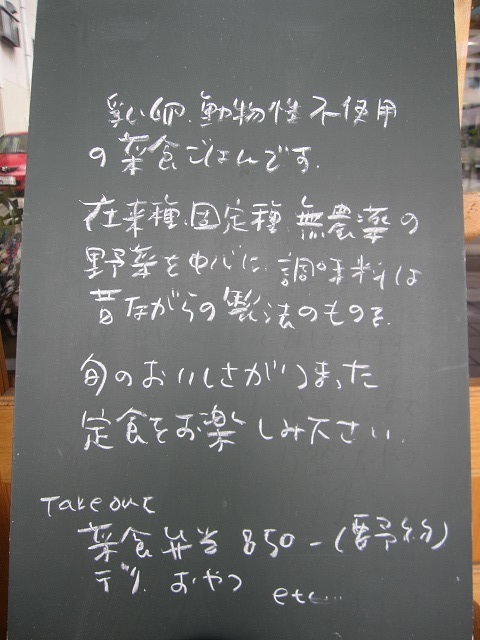 乳、卵、動物性不使用
の菜食ごはんです。
在来種、固定種、無農薬の
野菜を中心に、調味料は
昔ながらの製法のものを。
旬のおいしさがつまった
定食をお楽しみ下さい。
Take out
菜食弁当 850-(要予約)
デリ、おやつ etc...